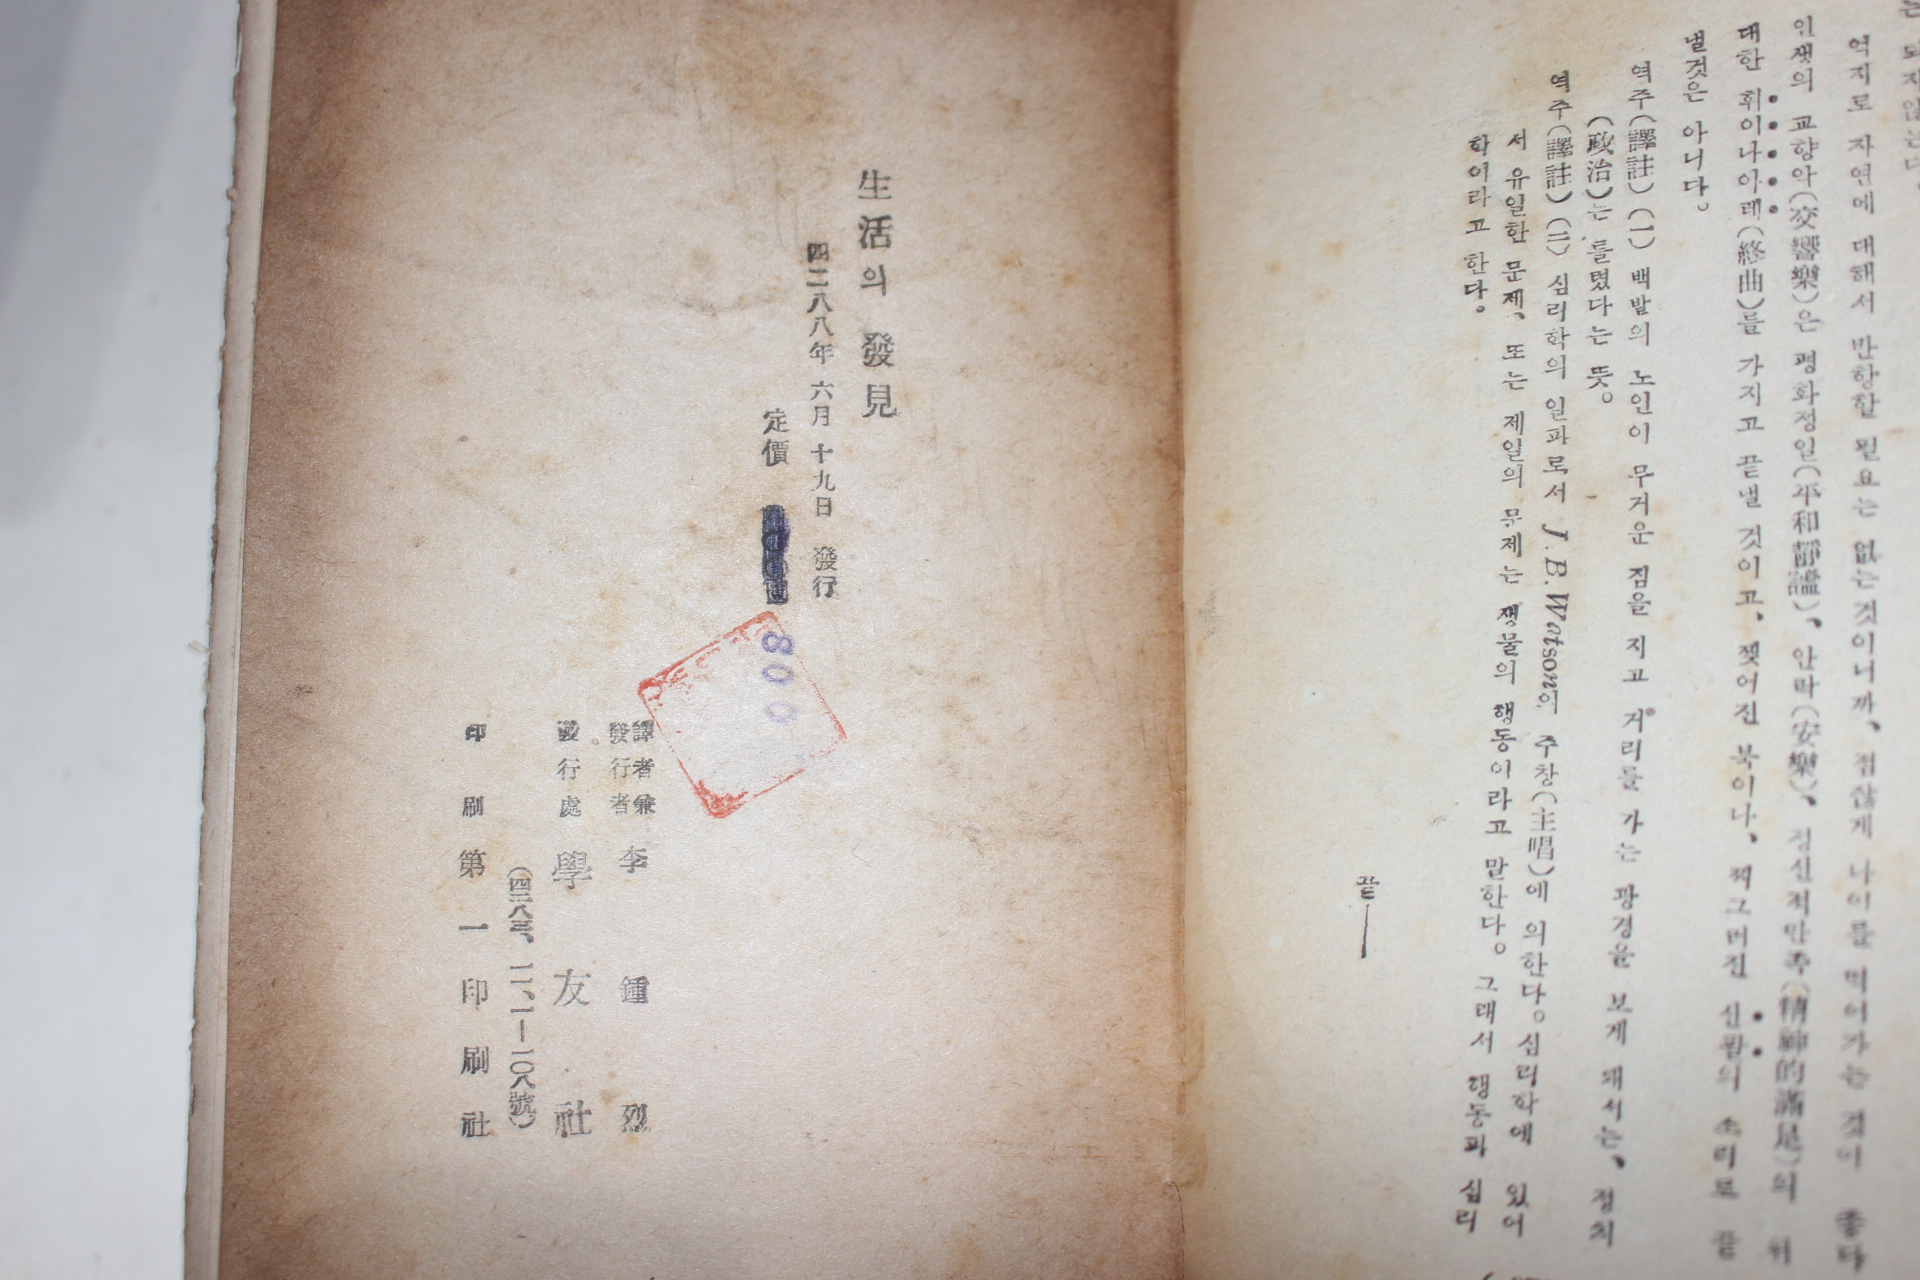 억지로 자연에 대해서 반항할 필요는 없는것이니까、점잖게 나이를 먹어가는 것이 좋다
인생의 교향악(交響樂)은 평화정일(平和靜謐)、안락(安樂)、정신적만족(精神的滿足)의 위
대한 휘이나아레(終曲)를 가지고 끝낼 것이고、찢어진 북이나、찌그러진 신발의 소리로 끝
낼것은 아니다。
역주(譯註)(一) 백발의 노인이 무거운 짐을 지고 거리를 가는 광경을 보게 돼서는、정치
(政治)는 틀렸다는 뜻。
역주(譯註)(二) 심리학의 일파로서 J.B.Watson의 주창(主唱)에 의한다。심리학에 있어
서 유일한 문제、또는 제일의 문제는 생물의 행동이라고 말한다。그래서 행동과 심리
학이라고 한다。
끝—
生活의 發見
四二八八年 六月 十九日 發行
定價 800
譯者兼
發行者 李鍾烈
發行處 學友社
(四二八三、一一、一—一〇八號)
印刷 第一印刷社